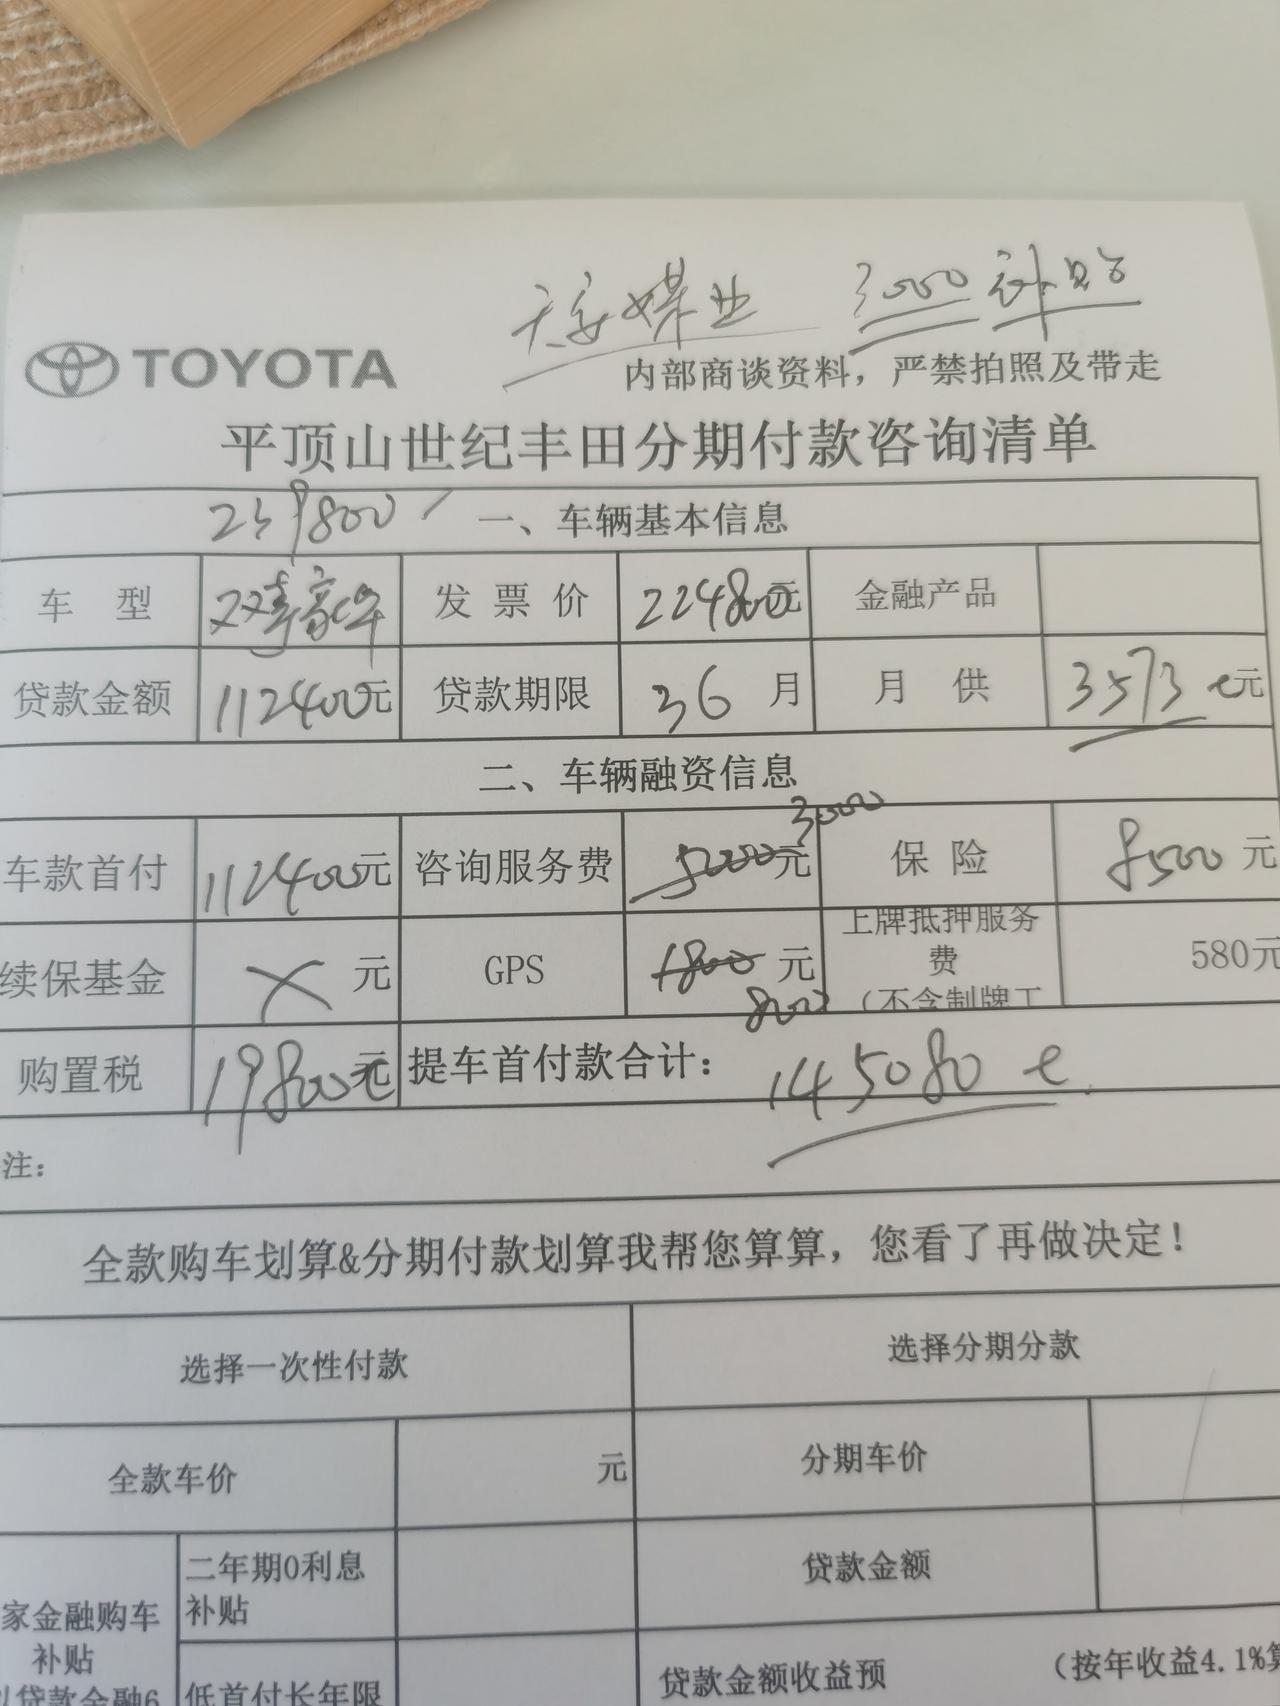 天安煤业 3000补贴
TOYOTA
内部商谈资料，严禁拍照及带走
平顶山世纪丰田分期付款咨询清单
239800 一、车辆基本信息
车 型 双擎豪华 发 票 价 224800元 金融产品
贷款金额 112400元 贷款期限 36 月 月 供 3573元
二、车辆融资信息
3000
车款首付 112400元 咨询服务费 5000元 保 险 8500元
续保基金 元 GPS 1800元 上牌抵押服务费（不含制牌工 580元
800
购置税 19800元 提车首付款合计： 145080
注：
全款购车划算&分期付款划算我帮您算算，您看了再做决定！
选择一次性付款 选择分期分款
全款车价 元 分期车价
家金融购车补贴 二年期0利息补贴 贷款金额
贷款金融6 低首付长年限 贷款金额收益预 （按年收益4.1%算